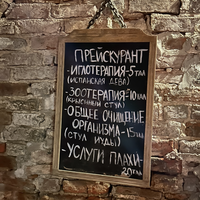 ПРЕЙСКУРАНТ
-ИГЛОТЕРАПИЯ-5ТАЛ
(ИСПАНСКАЯ ДЕВА)
-ЗООТЕРАПИЯ-10ТАЛ
(КРЫСИНЫЙ СТУЛ)
-ОБЩЕЕ ОЧИЩЕНИЕ
ОРГАНИЗМА-15ТАЛ
(СТУЛ ИУДЫ)
-УСЛУГИ ПЛАХИ-
20ТАЛ